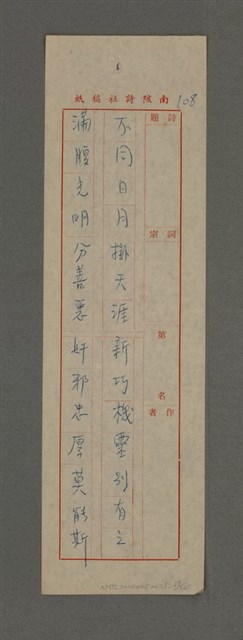 南陔詩社稿紙
108
詩題
詞宗
第 名
作者
不同日月掛天涯新巧機靈別有之
滿腹光明分善惡奸邪忠厚莫能斯